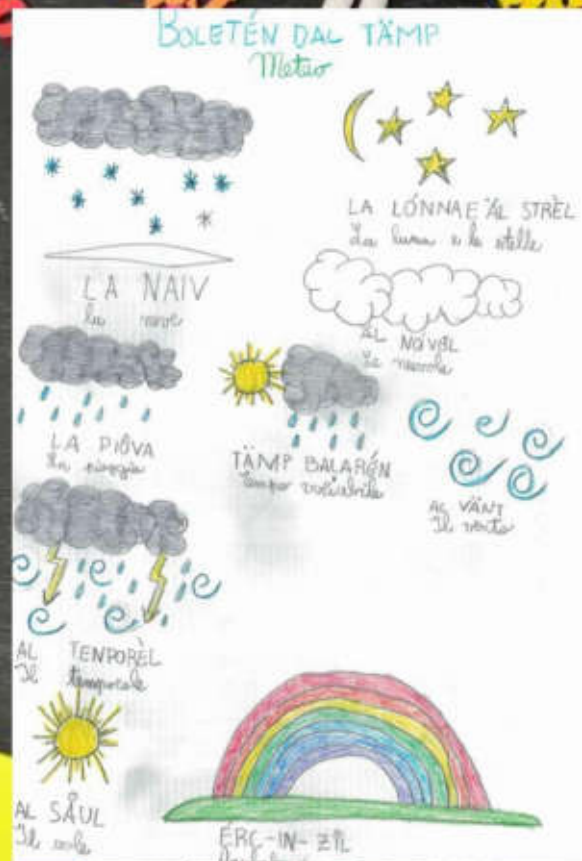 BOLETÉN DAL TÄMP
Meteo
LA LÓNNA E ÄL STRÈL
La luna e le stelle
LA NAIV
La neve
ÄL NÓVEL
Le nuvole
LA PIÔVA
La pioggia
TÄMP BALARÉN
Tempo variabile
AL VÄNT
Il vento
AL TENPORÈL
Il temporale
AL SÅUL
Il sole
ÉRC-IN-ZIL